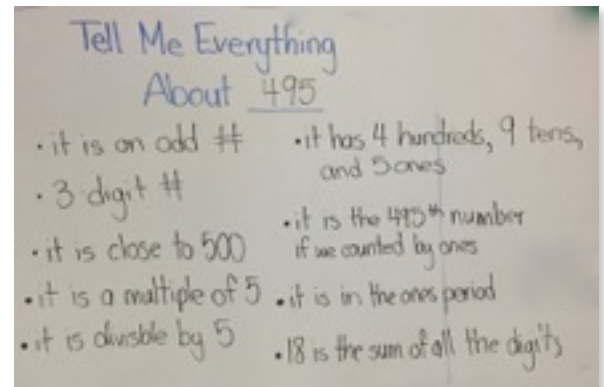 Tell Me Everything
About 495
• it is an odd #
• 3-digit #
• it is close to 500
• it is a multiple of 5
• it is divisble by 5
• it has 4 hundreds, 9 tens,
and 5 ones
• it is the 495th number
if we counted by ones
• it is in the ones period
• 18 is the sum of all the digits